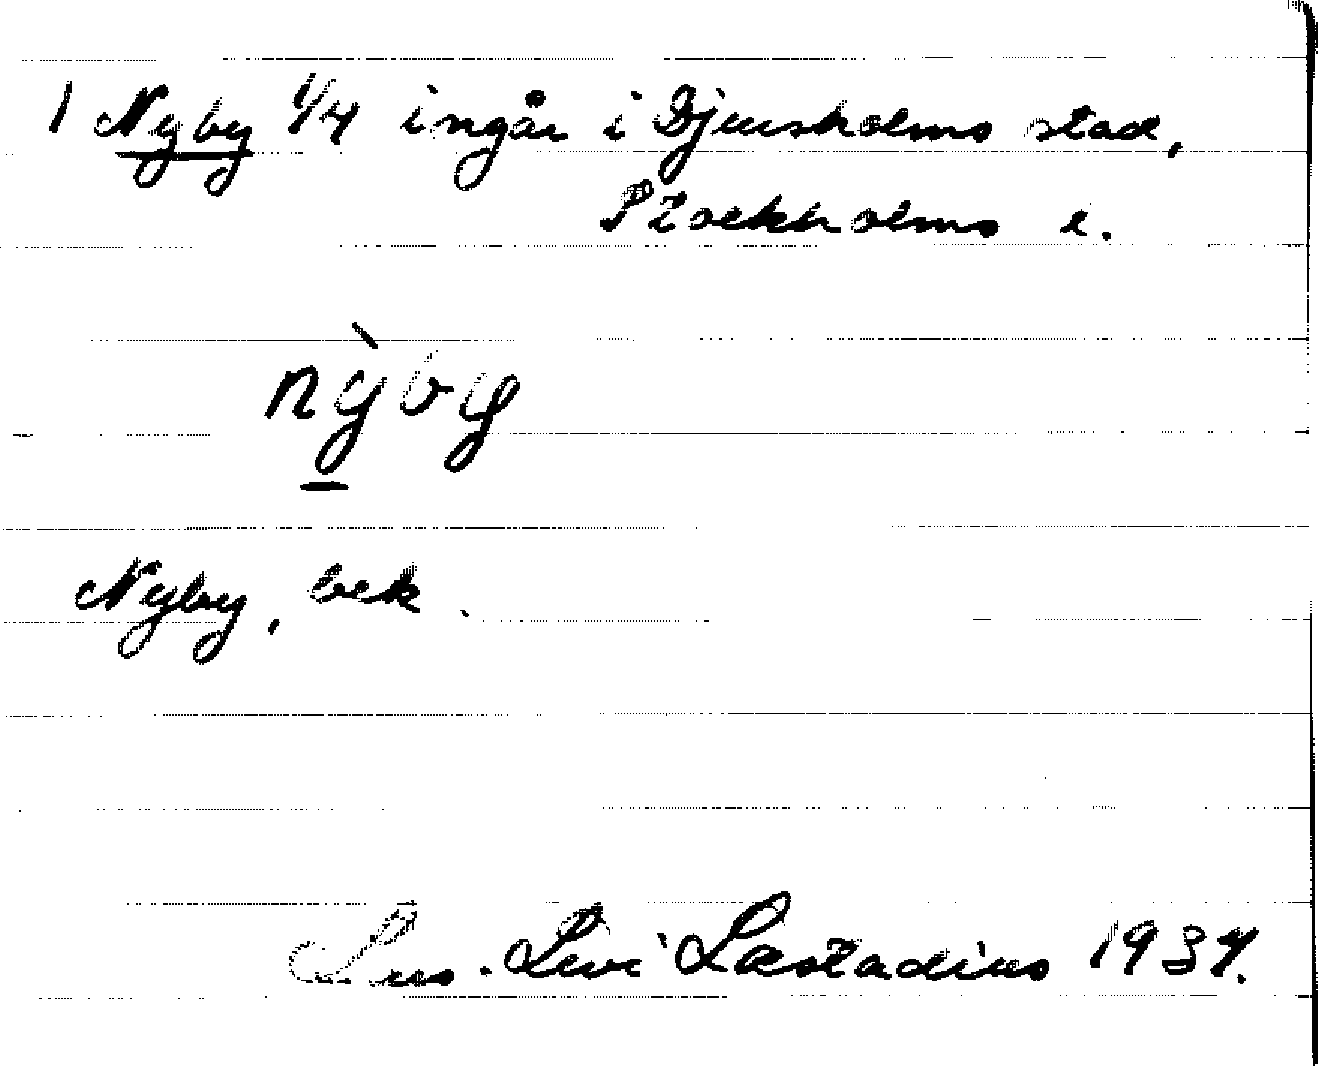 1 Nyby 1/4 ingår i Djursholms stad,
Stockholms l.
nỳby
Nyby, bek.
Lius. Levi Læstadius 1937.